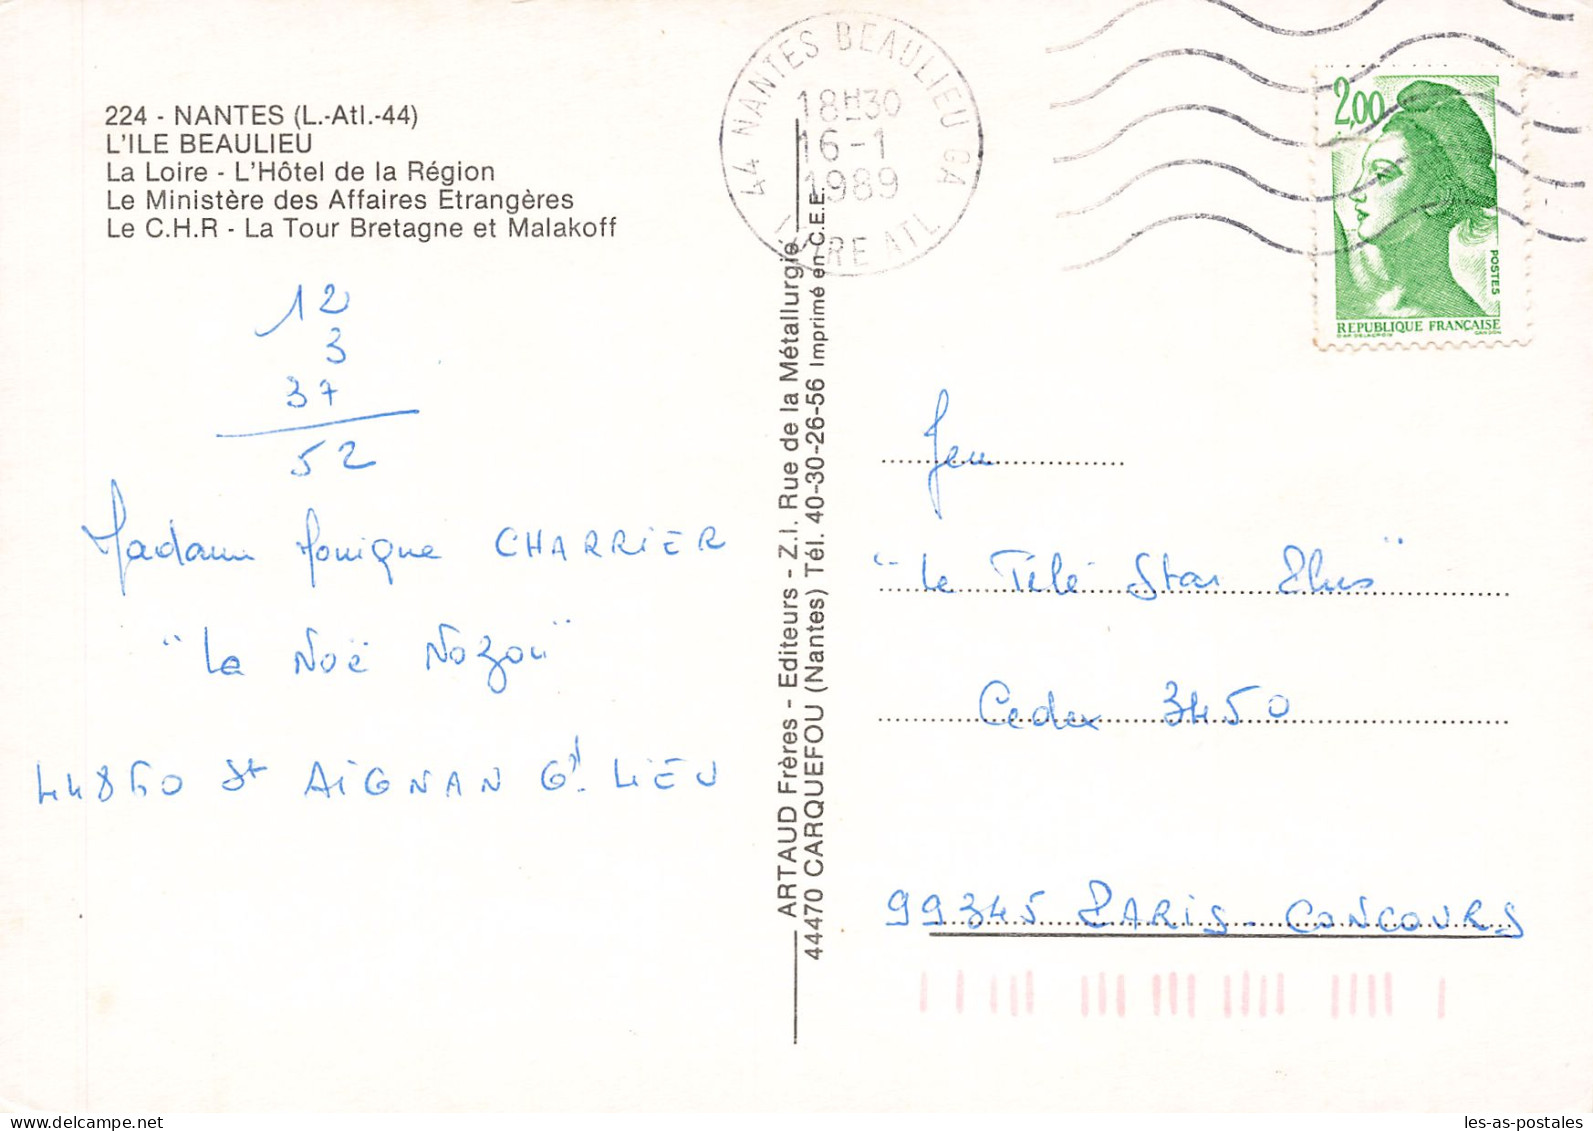 224 - NANTES (L.-Atl.-44)
L'ILE BEAULIEU
La Loire - L'Hôtel de la Région
Le Ministère des Affaires Etrangères
Le C.H.R - La Tour Bretagne et Malakoff
12
3
37
52
Madame Monique CHARRIER
"La Noë Nozou"
44860 St AIGNAN Gd. LIEU
ARTAUD Frères - Editeurs - Z.I. Rue de la Métallurgie
44470 CARQUEFOU (Nantes) Tél. 40-30-26-56 Imprimé en C.E.E.
44 NANTES BEAULIEU GA
18H30
16-1
1989
LOIRE ATL
2,00
POSTES
REPUBLIQUE FRANÇAISE
D'AP. DELACROIX GANDON
Jeu
"Le Télé Star Plus"
Cedex 3450
99345 PARIS-CONCOURS
les-as-postales